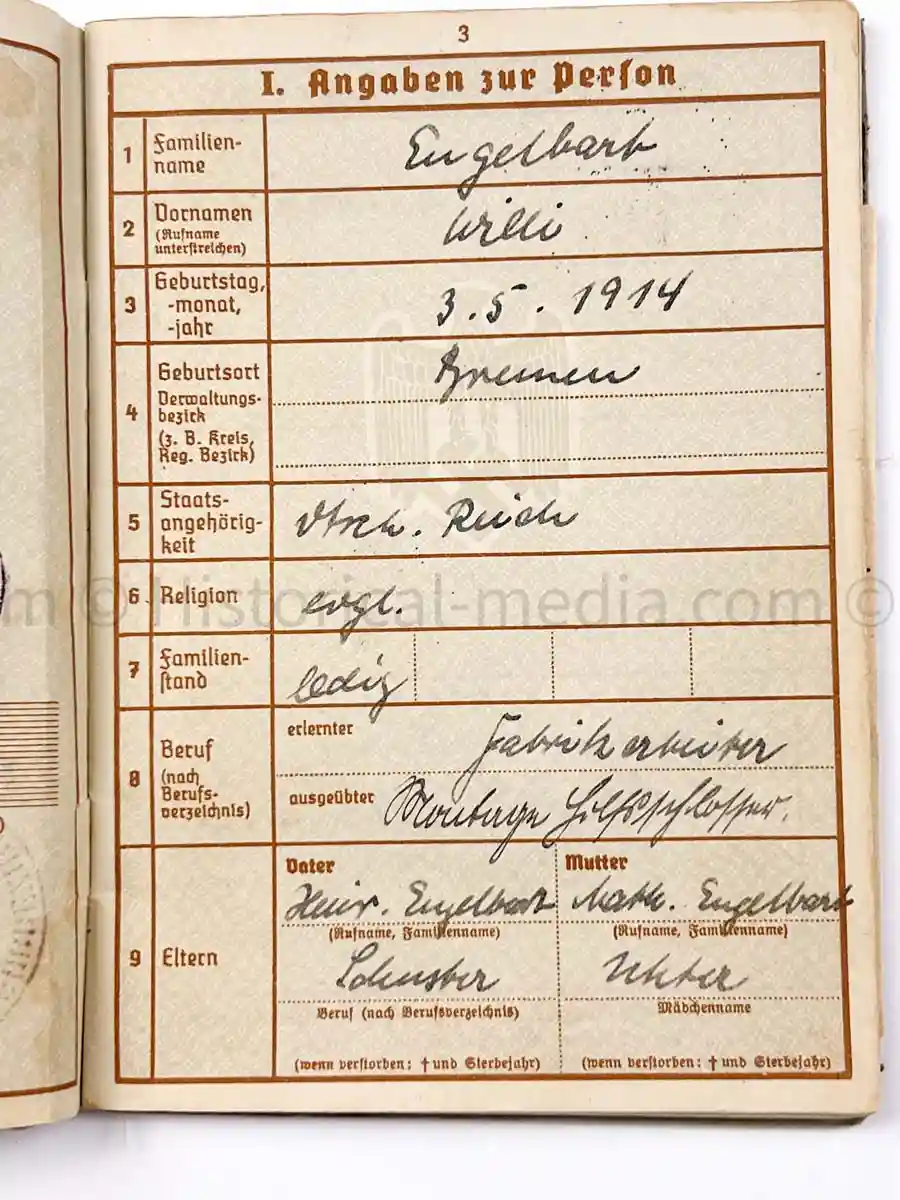 3
I. Angaben zur Person
1 Familien-
name
Engelbart
2 Vornamen
(Rufname
unterstreichen)
Willi
3 Geburtstag,
-monat,
-jahr
3.5.1914
4 Geburtsort
Verwaltungs-
bezirk
(z. B. Kreis,
Reg. Bezirk)
Bremen
5 Staats-
angehörig-
keit
Dtsch. Reich
6 Religion
evgl.
7 Familien-
stand
ledig
8 Beruf
(nach
Berufs-
verzeichnis)
erlernter Fabrikarbeiter
ausgeübter Montage Hilfsschlosser.
9 Eltern
Vater
Heinr. Engelbart
(Rufname, Familienname)
Schuster
Beruf (nach Berufsverzeichnis)
(wenn verstorben: † und Sterbejahr)
Mutter
Math. Engelbart
(Rufname, Familienname)
Mädchenname
(wenn verstorben: † und Sterbejahr)
m © Historical-media.com ©